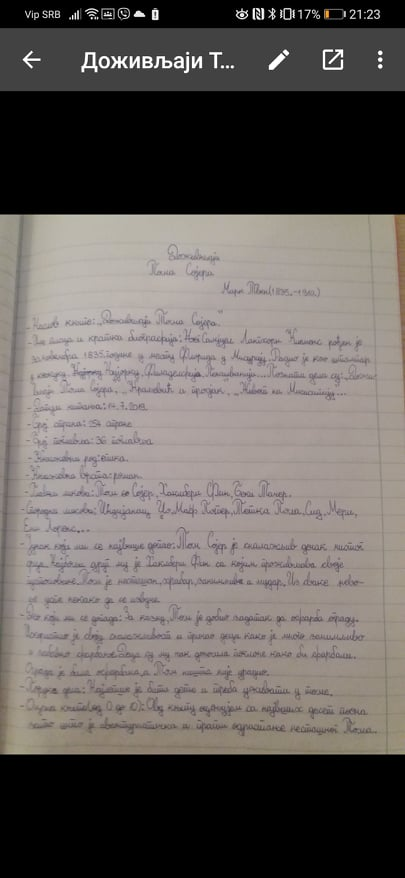 Vip SRB 17% 21:23
Доживљаји Т...
Доживљаји
Тома Сојера
Марк Твен (1835.-1910.)
- Назив књиге: „Доживљаји Тома Сојера."
- Име писца и кратка биографија: Семјуел Лангхорн Клеменс рођен је
30. новембра 1835. године у месту Флорида у Мисурију. Радио је као штампар
у Њујорку, Филаделфија, ... Позната дела су: „Дожив-
љаји Тома Сојера", „Краљевић и просјак", „Живот на Мисисипију...
- Датум читања: 14.7.2019.
- Број страна: 254 стране
- Број поглавља: 36 поглавља
- Књижевни род: епика.
- Књижевна врста: роман.
- Главни ликови: Том Сојер, Хаклбери Фин, Беки Тачер.
- Споредни ликови: Индијанац Џо, Маф Потер, Тетка Поли, Сид, Мери,
- Јунак који ми се највише допао: Том Сојер је сналажљив дечак чистог
срца. Најбољи друг му је Хаклбери Фин са којим проживљава своје
пустоловине. Том је несташан, храбар, занимљив и мудар. Из сваке нево-
ље уме некако да се извуче.
- Део који ми се допада: За казну, Том је добио задатак да офарба ограду.
Искористио је своју сналажљивост и причао деци како је много занимљиво
и забавно фарбање. Деца су му чак доносила поклоне како би фарбали.
Ограда је била офарбана, а Том ништа није урадио.
- Порука дела: Најлепше је бити дете и треба уживати у томе.
- Оцена књиге (од 0 до 10): Ову књигу оцењујем са највиших десет поена
зато што је авантуристичка и прати одрастање несташног Тома.